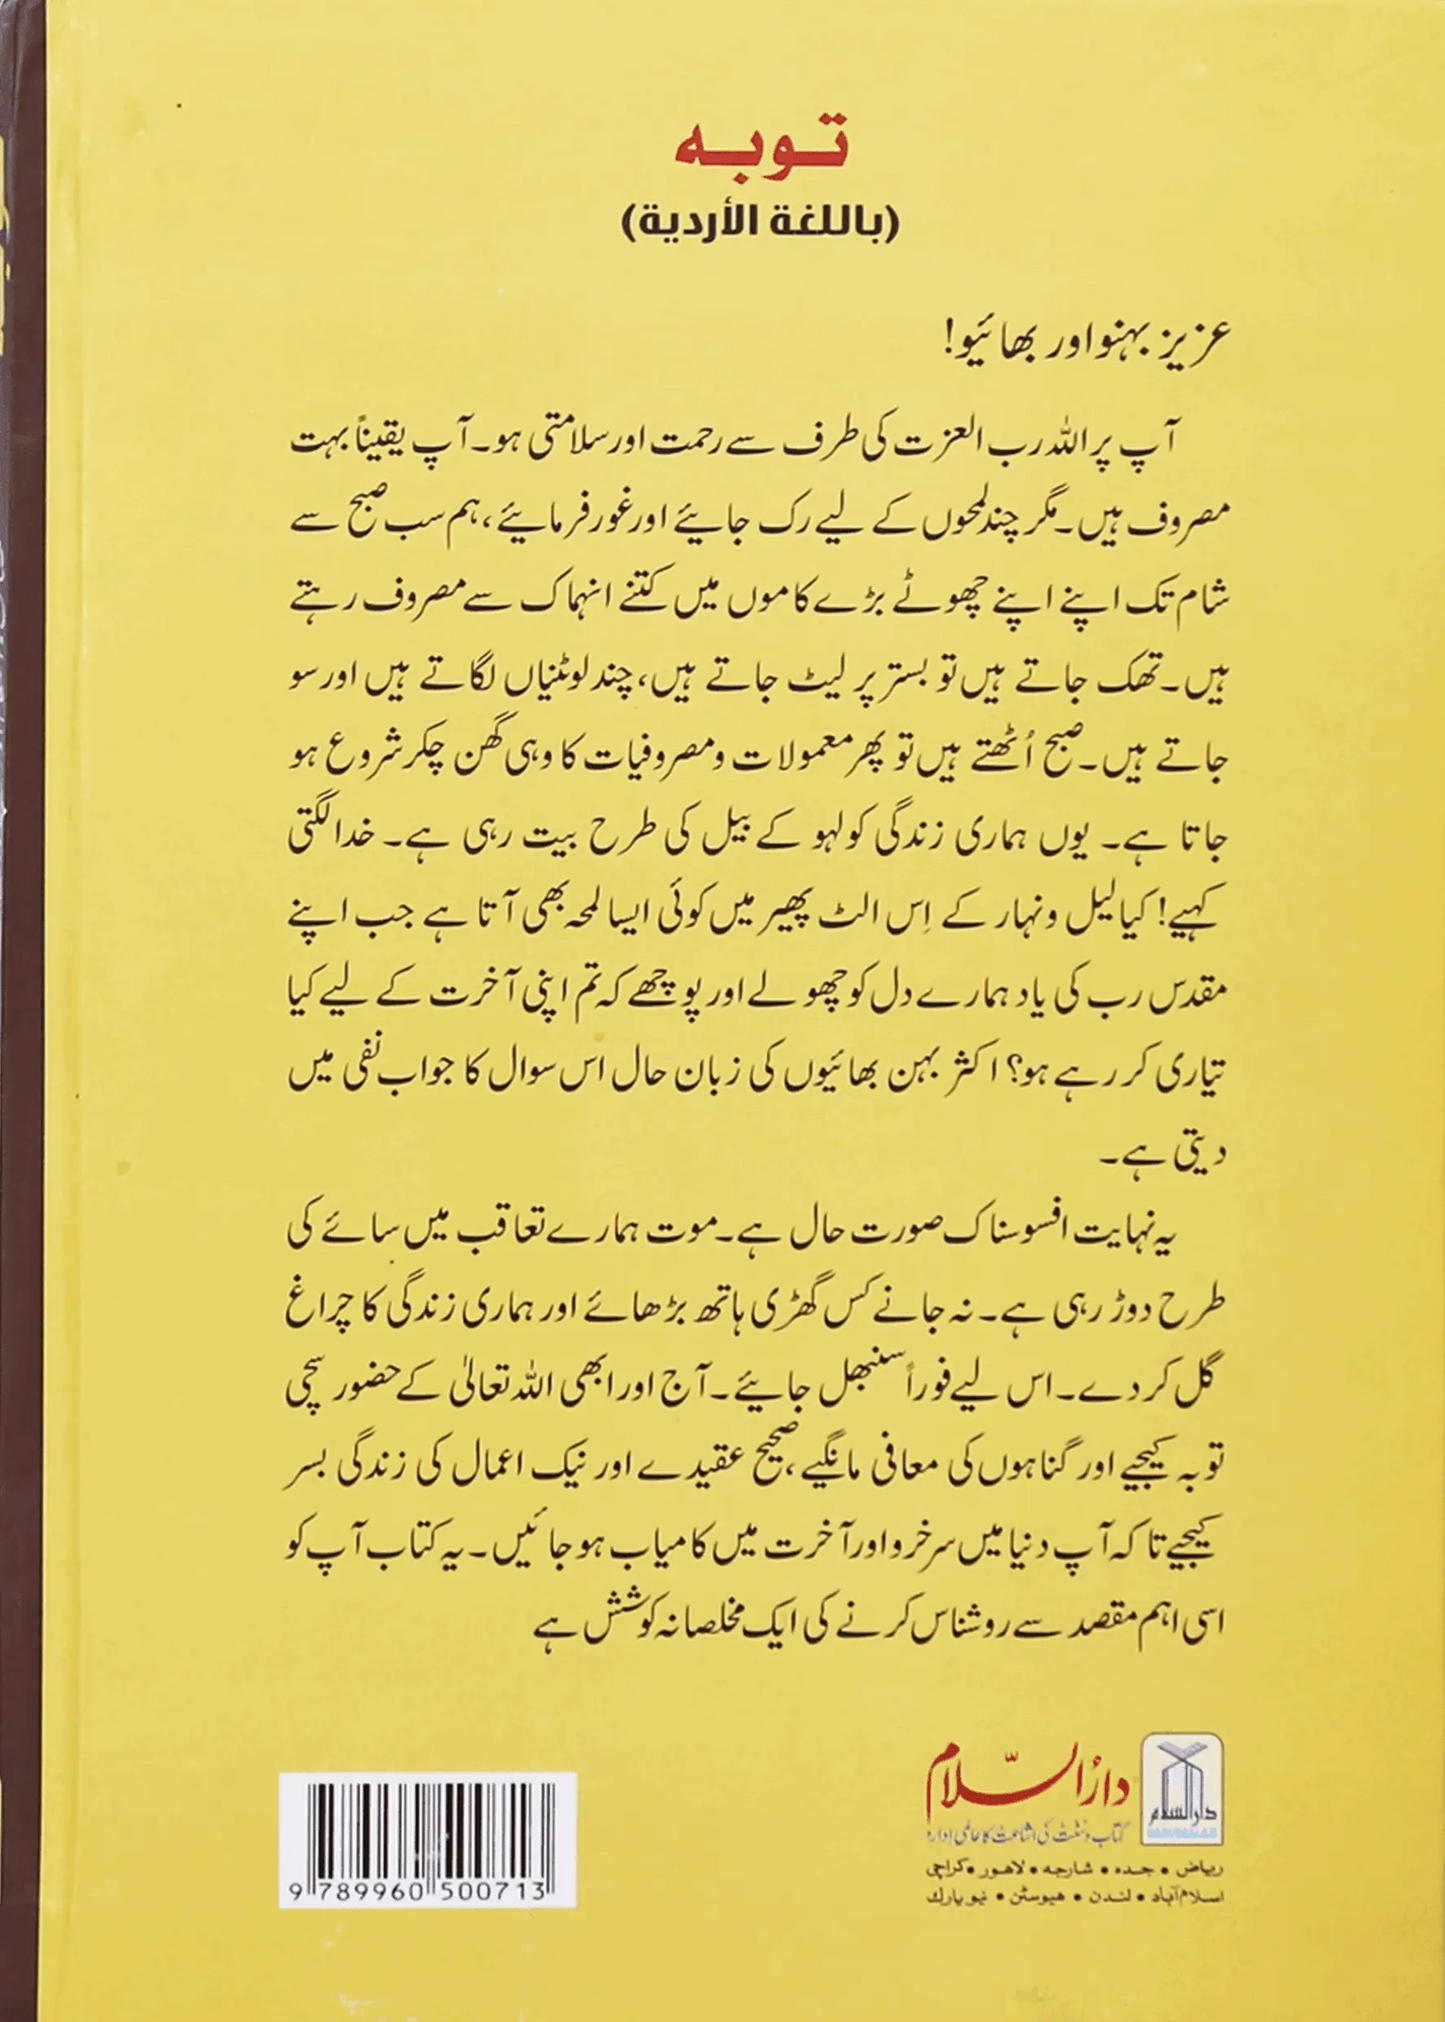 توبہ
(باللغة الأردية)
عزیز بہنو اور بھائیو!
آپ پر اللہ رب العزت کی طرف سے رحمت اور سلامتی ہو۔ آپ یقیناً بہت
مصروف ہیں۔ مگر چند لمحوں کے لیے رک جائیے اور غور فرمائیے، ہم سب صبح سے
شام تک اپنے اپنے چھوٹے بڑے کاموں میں کتنے انہماک سے مصروف رہتے
ہیں۔ تھک جاتے ہیں تو بستر پر لیٹ جاتے ہیں، چند لوٹنیاں لگاتے ہیں اور سو
جاتے ہیں۔ صبح اُٹھتے ہیں تو پھر معمولات و مصروفیات کا وہی گھن چکر شروع ہو
جاتا ہے۔ یوں ہماری زندگی کولہو کے بیل کی طرح بیت رہی ہے۔ خدا لگتی
کہیے! کیا لیل و نہار کے اِس الٹ پھیر میں کوئی ایسا لمحہ بھی آتا ہے جب اپنے
مقدس رب کی یاد ہمارے دل کو چھو لے اور پوچھے کہ تم اپنی آخرت کے لیے کیا
تیاری کر رہے ہو؟ اکثر بہن بھائیوں کی زبان حال اس سوال کا جواب نفی میں
دیتی ہے۔
یہ نہایت افسوسناک صورت حال ہے۔ موت ہمارے تعاقب میں سائے کی
طرح دوڑ رہی ہے۔ نہ جانے کس گھڑی ہاتھ بڑھائے اور ہماری زندگی کا چراغ
گل کر دے۔ اس لیے فوراً سنبھل جائیے۔ آج اور ابھی اللہ تعالیٰ کے حضور سچی
توبہ کیجیے اور گناہوں کی معافی مانگیے، صحیح عقیدے اور نیک اعمال کی زندگی بسر
کیجیے تاکہ آپ دنیا میں سرخرو اور آخرت میں کامیاب ہو جائیں۔ یہ کتاب آپ کو
اسی اہم مقصد سے روشناس کرنے کی ایک مخلصانہ کوشش ہے
دارُالسّلام
دارالسلام
DARUSSALAM
کتاب و سنت کی اشاعت کا عالمی ادارہ
ریاض • جدہ • شارجہ • لاہور • کراچی
اسلام آباد • لندن • ہیوسٹن • نیو یارک
9 789960 500713